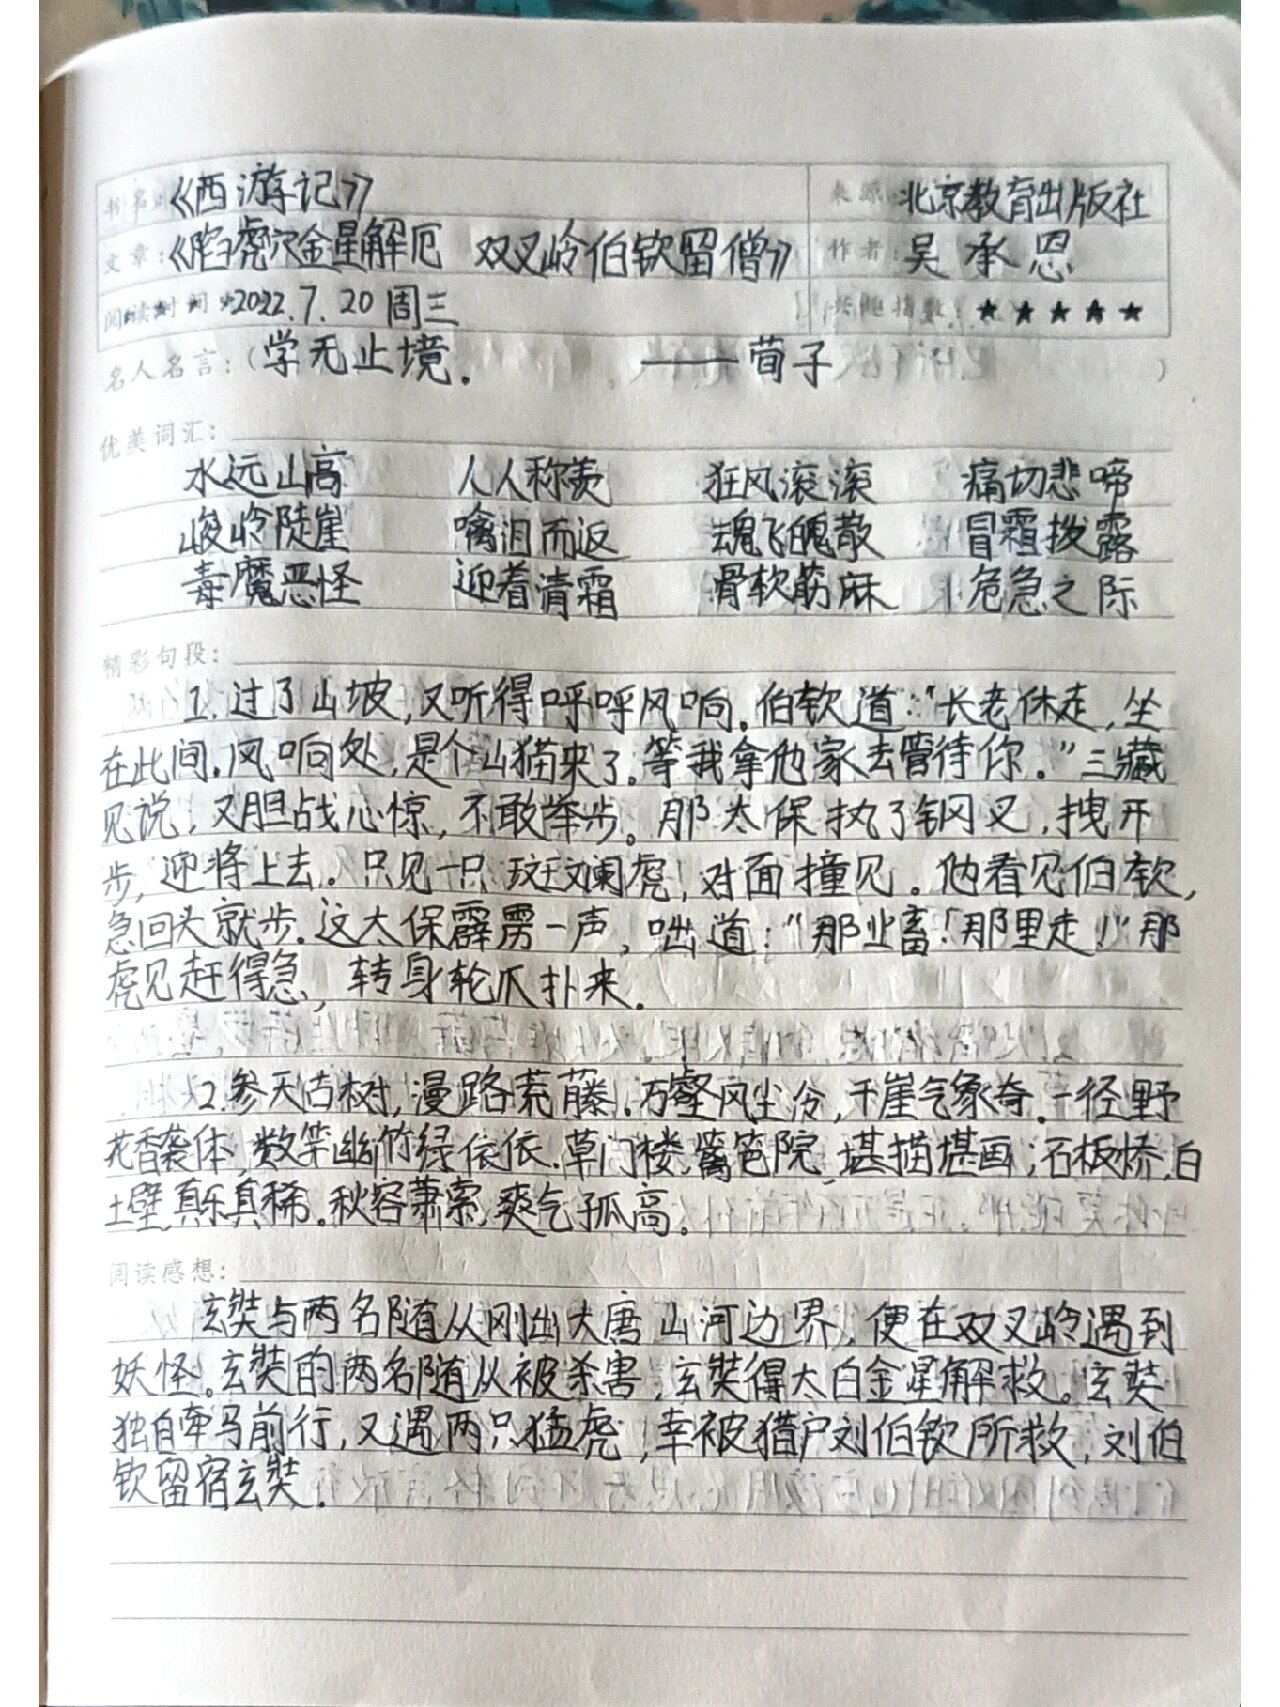 书名:《西游记》 来源:北京教育出版社
文章:《陷虎穴金星解厄 双叉岭伯钦留僧》 作者:吴承恩
阅读时间:2022.7.20 周三 兴趣指数:★★★★★
名人名言:(学无止境. ——荀子)
优美词汇:
水远山高 人人称羡 狂风滚滚 痛切悲啼
峻岭陡崖 噙泪而返 魂飞魄散 冒霜披露
毒魔恶怪 迎着清霜 骨软筋麻 危急之际
精彩句段:
1.过了山坡,又听得呼呼风响。伯钦道:“长老休走,坐
在此间.风响处,是个山猫来了。等我拿他家去管待你。”三藏
见说,又胆战心惊,不敢举步。那太保执了钢叉,拽开
步,迎将上去。只见一只斑斓虎,对面撞见。他看见伯钦,
急回头就步.这太保霹雳一声,咄道:“那业畜!那里走!”那
虎见赶得急,转身轮爪扑来.
2.参天古树,漫路荒藤.万壑风尘冷,千崖气象奇.一径野
花香袭体,数竿幽竹绿依依.草门楼,篱笆院,堪描堪画;石板桥,白
土壁,真乐真稀。秋容萧索,爽气孤高。
阅读感想:
玄奘与两名随从刚出大唐山河边界,便在双叉岭遇到
妖怪。玄奘的两名随从被杀害,玄奘得太白金星解救。玄奘
独自牵马前行,又遇两只猛虎,幸被猎户刘伯钦所救,刘伯
钦留宿玄奘.